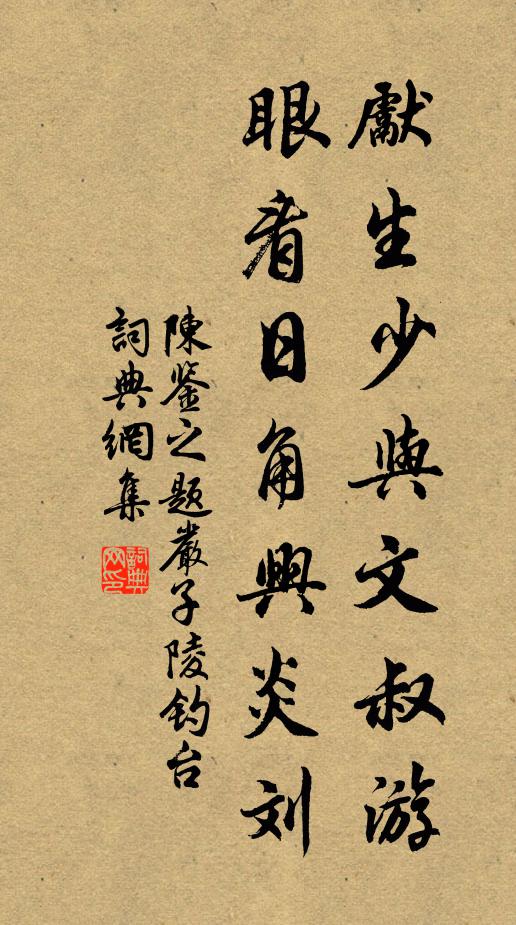 獻生少與文叔游
眼看日角興炎刘
陳鉴之题嚴子陵钓台
詞典網集
詞典网印